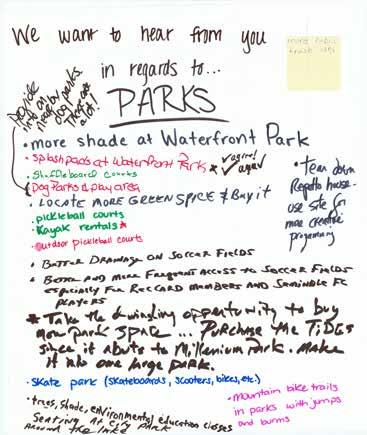 We want to hear from you
more public
trash cans
in regards to...
PARKS
Provide
info on
nearby
dog parks
there are
alot!
• more shade at Waterfront Park
• Splashpads at Waterfront Park * ✓agree! ✓agree
• Shuffleboard courts
• Dog Parks & play area
• LOCATE MORE GREEN SPACE & Buy it
• pickleball courts
• Kayak rentals *
• Outdoor pickleball courts
• Tear down
Regatta house-
use site for
more creative
programming
• Better Drainage on Soccer Fields
• Better and more Frequent Access to Soccer Fields
especially for Rec Card members and Seminole FC
players
* Take the dwindling opportunity to buy
more park space ... Purchase the TIDES
since it abuts to Millenium Park. Make
it into one large park.
• Skate park (skateboards, scooters, bikes, etc.)
• Mountain bike trails
in parks with jumps
and burms
• trees, shade, environmental education classes
Seating at City Park
Around the lake